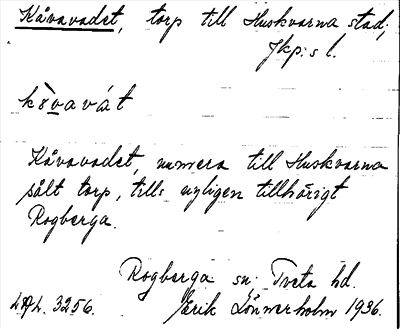 Kåvavadet, torp till Huskvarna stad,
Jkp:s l.
kò̀vavát
Kåvavadet, numera till Huskvarna
sålt torp, tills nyligen tillhörigt
Rogberga.
Rogberga sn. Tveta hd.
LAL. 3256. Erik Lönnerholm 1936.